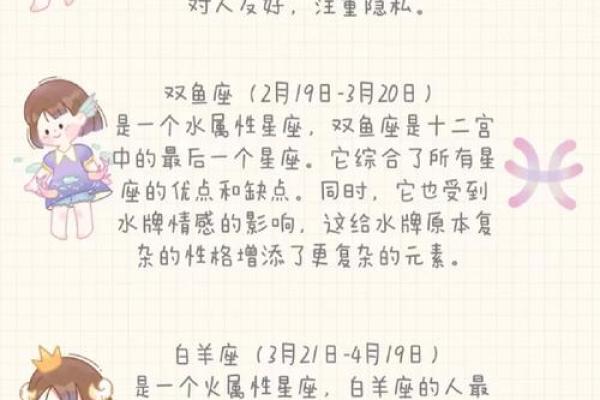 对人友好，注重隐私。
双鱼座（2月19日-3月20日）
是一个水属性星座，双鱼座是十二宫
中的最后一个星座。它综合了所有星
座的优点和缺点。同时，它也受到
水牌情感的影响，这给水牌原本复
杂的性格增添了更复杂的元素。
白羊座（3月21日-4月19日）
是一个火属性星座，白羊座的人最